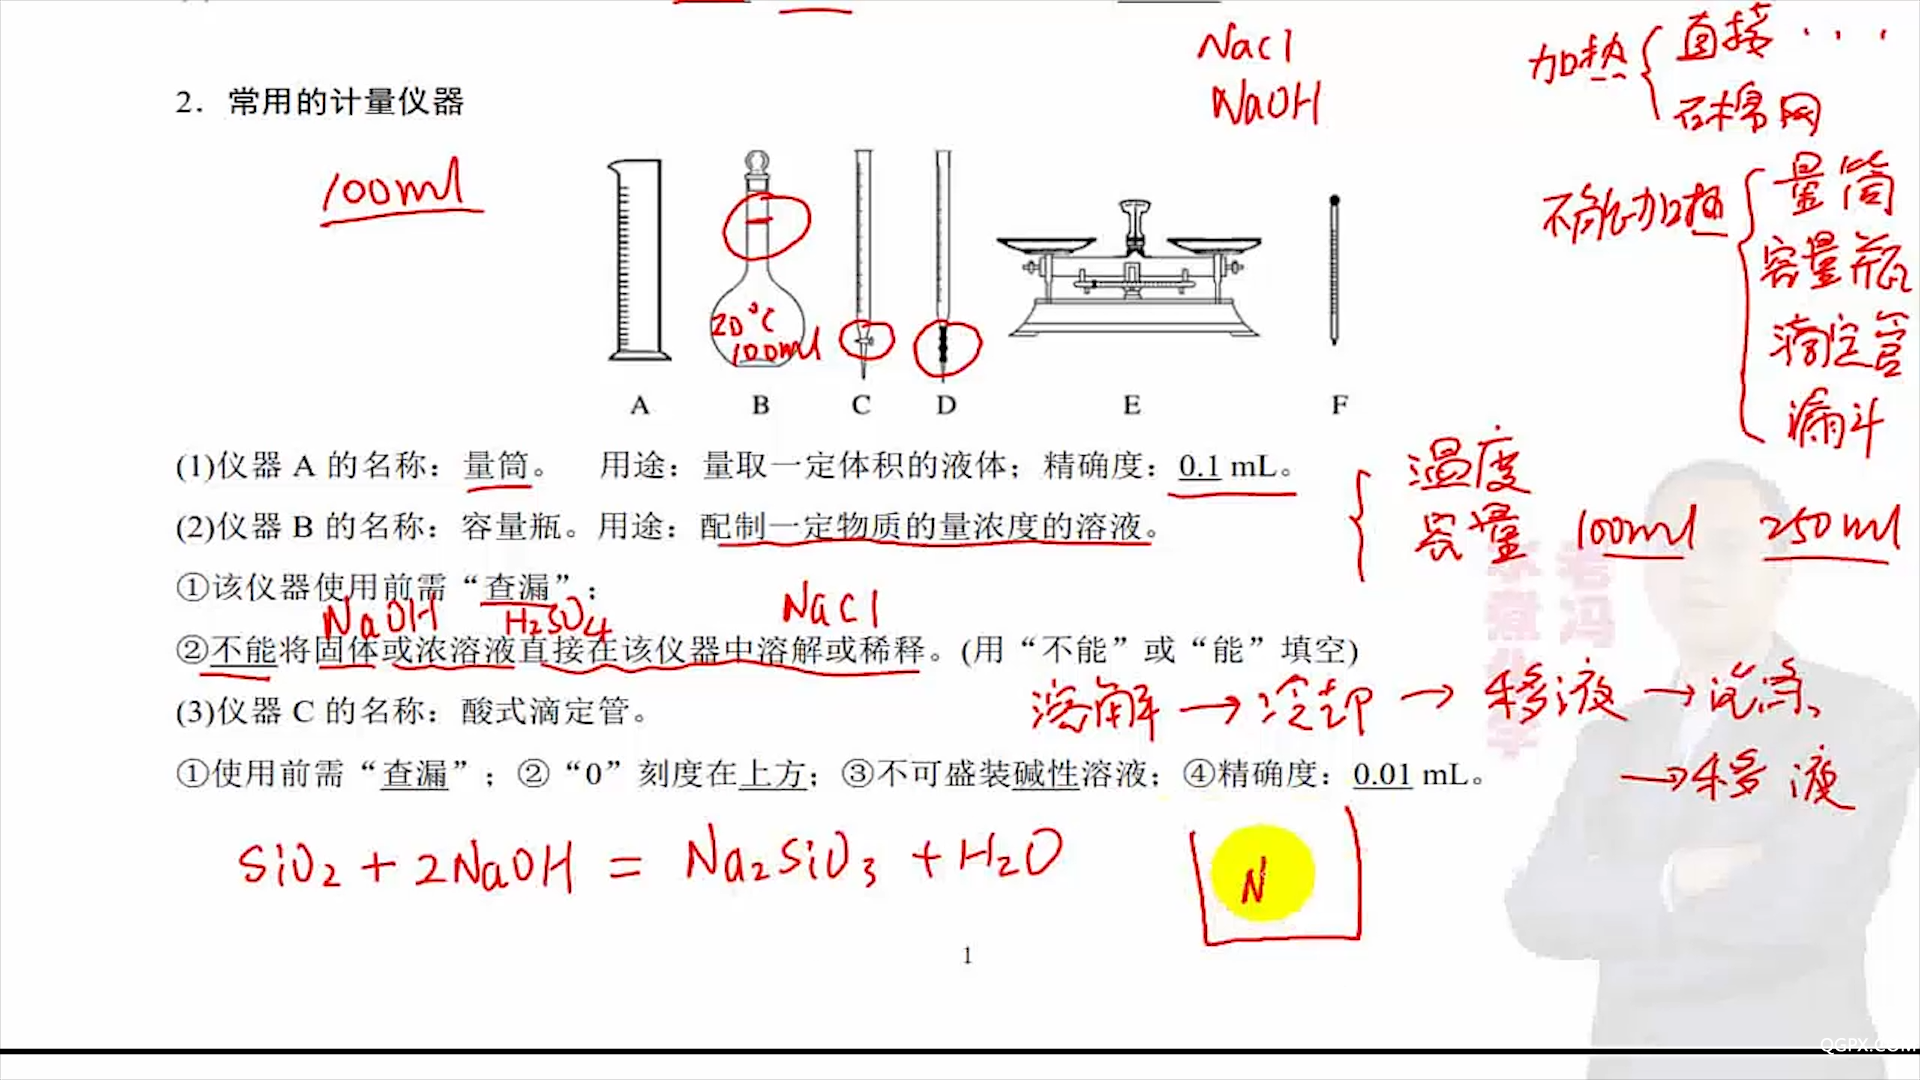 NaCl
NaOH
加热 直接 ...
石棉网
2．常用的计量仪器
100ml
不能加热 量筒
容量瓶
滴定管
漏斗
20℃
100ml
A B C D E F
(1)仪器 A 的名称：量筒。 用途：量取一定体积的液体；精确度：0.1 mL。
温度
容量 100ml 250ml
(2)仪器 B 的名称：容量瓶。用途：配制一定物质的量浓度的溶液。
①该仪器使用前需“查漏”；
NaOH H₂SO₄ NaCl
②不能将固体或浓溶液直接在该仪器中溶解或稀释。(用“不能”或“能”填空)
溶解→冷却→移液→洗涤
→移液
(3)仪器 C 的名称：酸式滴定管。
①使用前需“查漏”；②“0”刻度在上方；③不可盛装碱性溶液；④精确度：0.01 mL。
SiO₂+2NaOH=Na₂SiO₃+H₂O
N
1
QGPX.COM